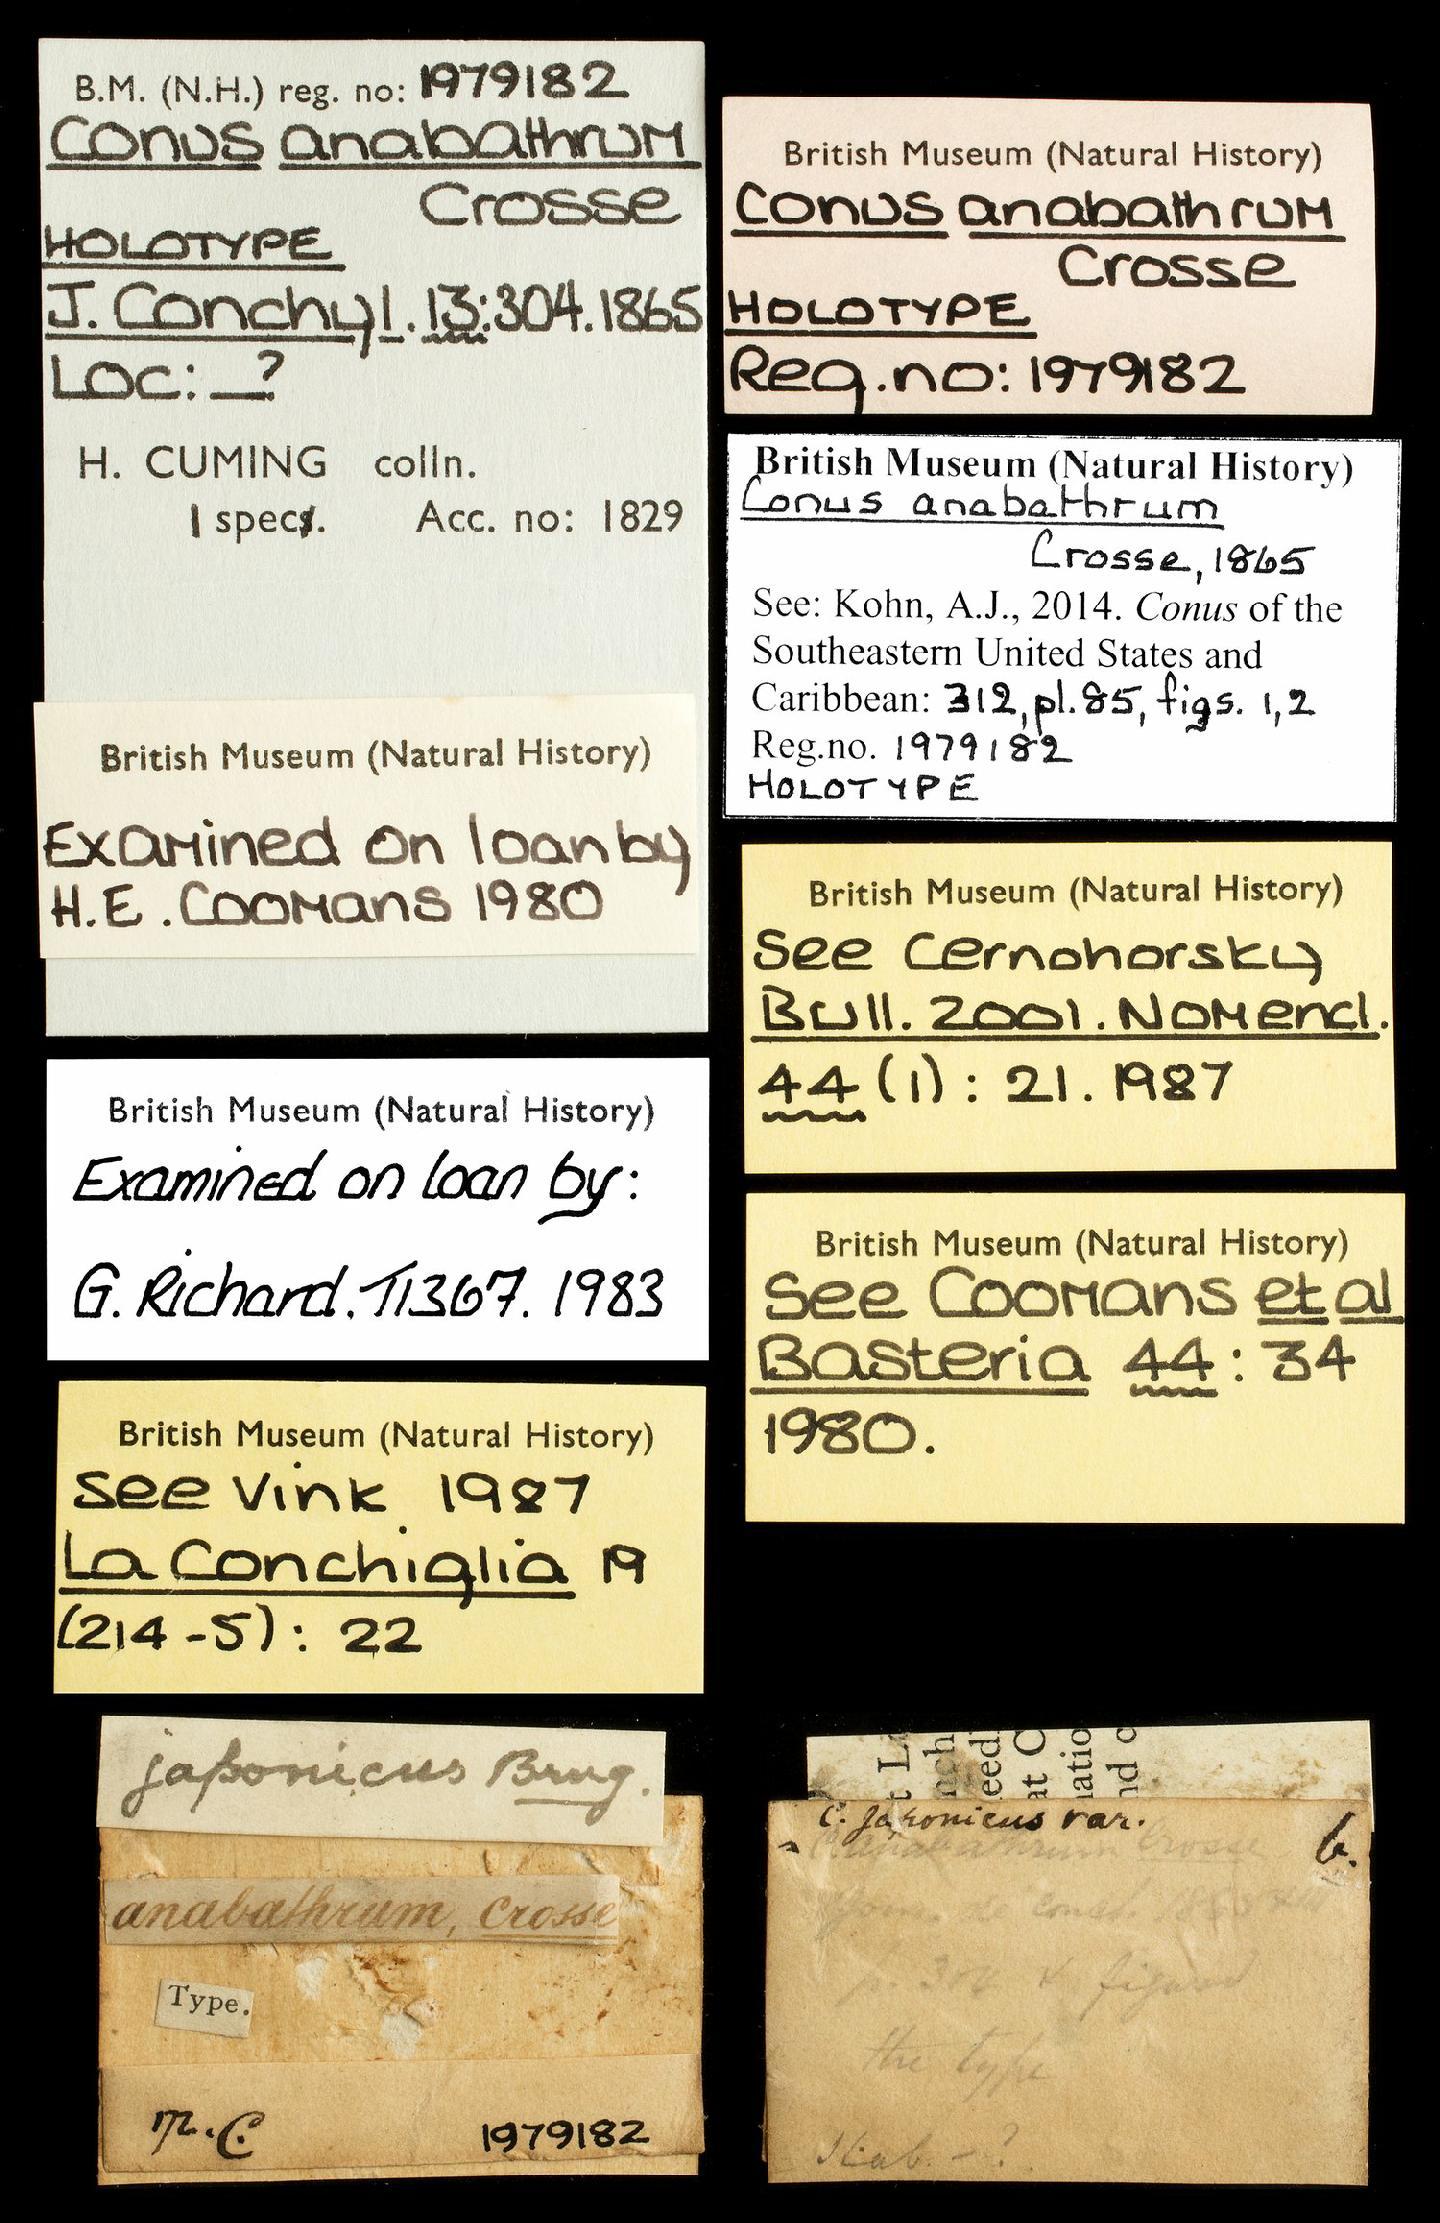 B.M. (N.H.) reg. no: 1979182
Conus anabathrum
Crosse
HOLOTYPE
J. Conchyl. 13:304.1865
Loc: _?
H. CUMING colln.
1 spec. Acc. no: 1829
British Museum (Natural History)
Examined on loan by
H.E. Coomans 1980
British Museum (Natural History)
Examined on loan by:
G. Richard. T1367. 1983
British Museum (Natural History)
see Vink 1987
La Conchiglia 19
(214-5): 22
japonicus Brug.
anabathrum, Crosse
Type.
M.C.
1979182
British Museum (Natural History)
Conus anabathrum
Crosse
HOLOTYPE
Reg.no: 1979182
British Museum (Natural History)
Conus anabathrum
Crosse, 1865
See: Kohn, A.J., 2014. Conus of the
Southeastern United States and
Caribbean: 312, pl.85, figs. 1,2
Reg.no. 1979182
HOLOTYPE
British Museum (Natural History)
See Cernohorsky
Bull. Zool. Nomencl.
44 (1): 21. 1987
British Museum (Natural History)
See Coomans et al
Basteria 44: 34
1980.
C. japonicus var. b.
anabathrum Crosse
Journ. de conch.
figured
the type
Hab. - ?